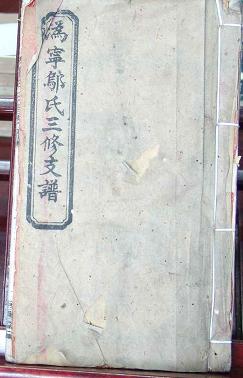 溈寧鄔氏三修支譜